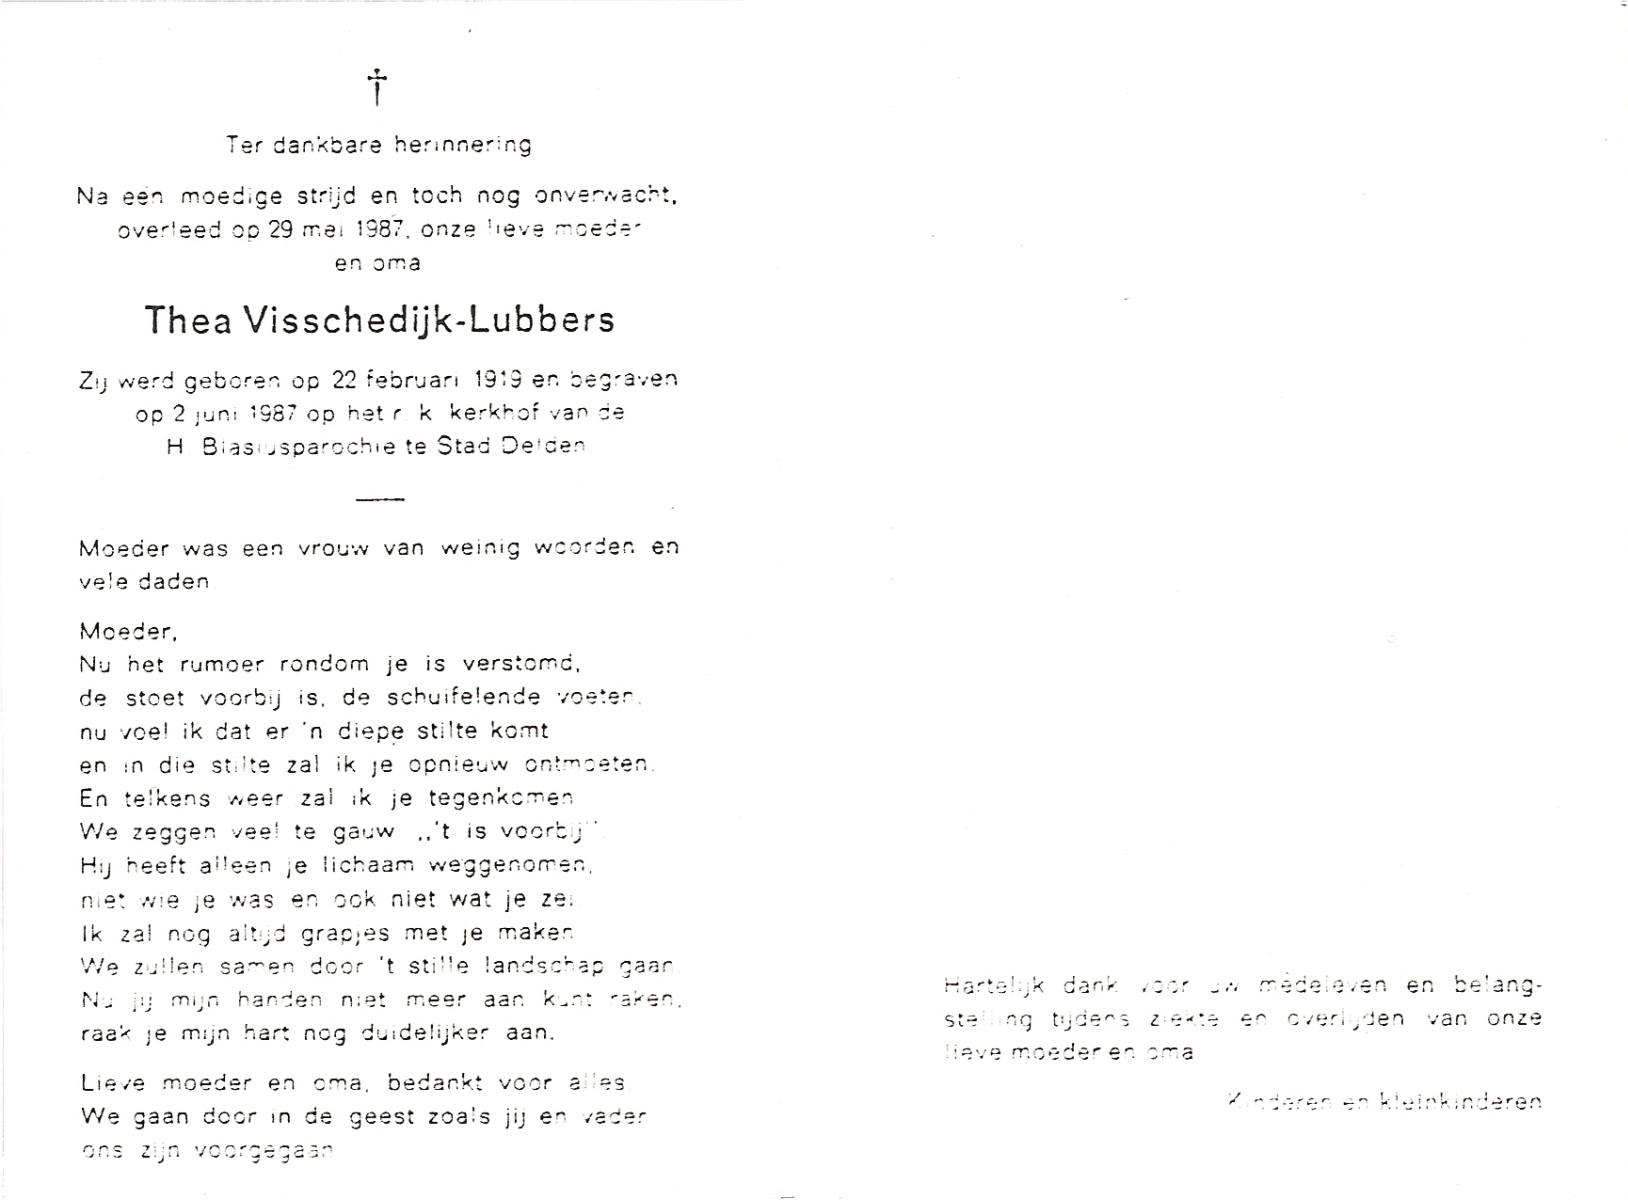 †
Ter dankbare herinnering
Na een moedige strijd en toch nog onverwacht,
overleed op 29 mei 1987, onze lieve moeder
en oma
Thea Visschedijk-Lubbers
Zij werd geboren op 22 februari 1919 en begraven
op 2 juni 1987 op het r.k. kerkhof van de
H. Blasiusparochie te Stad Delden
Moeder was een vrouw van weinig woorden en
vele daden
Moeder,
Nu het rumoer rondom je is verstomd,
de stoet voorbij is, de schuifelende voeten,
nu voel ik dat er 'n diepe stilte komt
en in die stilte zal ik je opnieuw ontmoeten.
En telkens weer zal ik je tegenkomen
We zeggen veel te gauw ,,'t is voorbij''
Hij heeft alleen je lichaam weggenomen,
niet wie je was en ook niet wat je zei
Ik zal nog altijd grapjes met je maken
We zullen samen door 't stille landschap gaan
Nu jij mijn handen niet meer aan kunt raken,
raak je mijn hart nog duidelijker aan.
Lieve moeder en oma, bedankt voor alles
We gaan door in de geest zoals jij en vader
ons zijn voorgegaan
Hartelijk dank voor uw medeleven en belang-
stelling tijdens ziekte en overlijden van onze
lieve moeder en oma
Kinderen en kleinkinderen